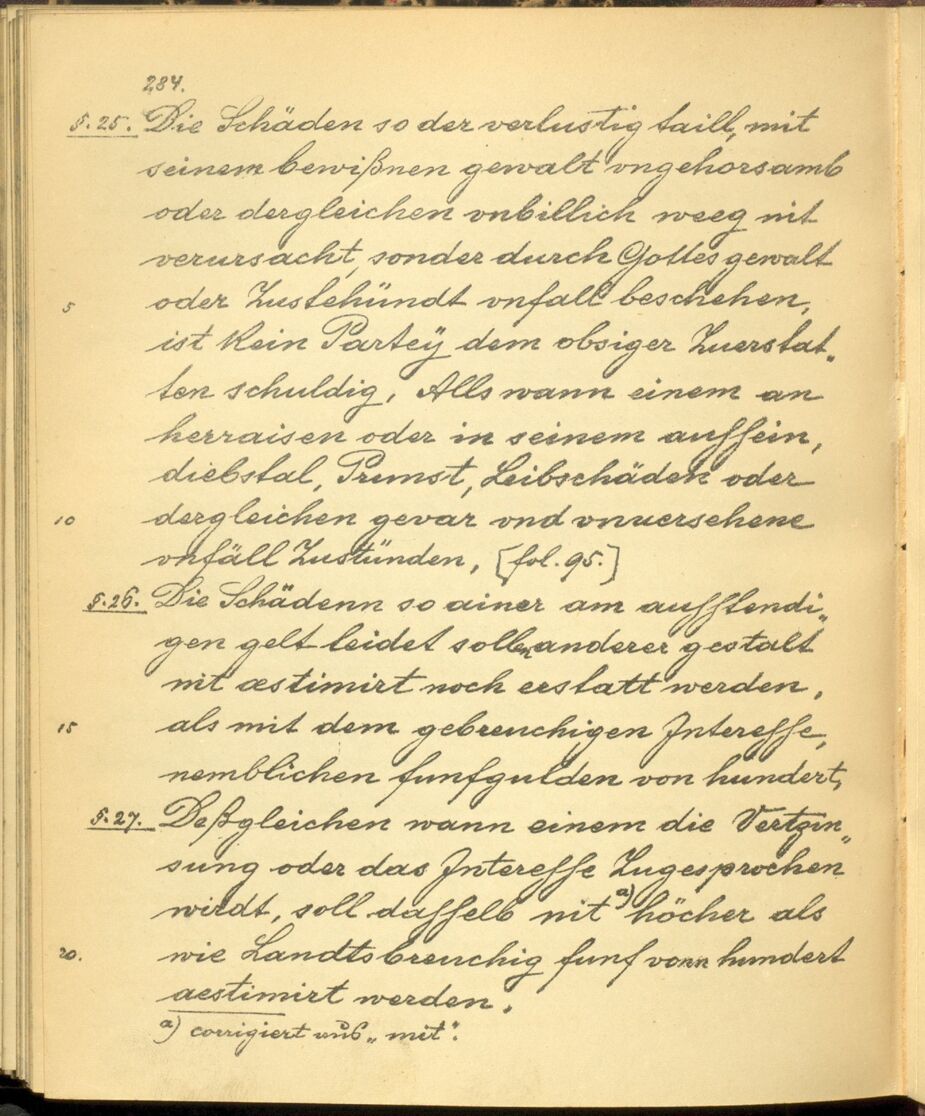 284.
§.25. Die Schäden so der verlustig taill, mit
seinem bewißnen gewalt vngehorsamb
oder dergleichen vnbillich weeg nit
verursacht, sonder durch Gottes gewalt
5 oder Zustehündt vnfall beschehen,
ist Kein Parteÿ dem obsiger Zuerstat„
ten schuldig, Alls wann einem an
herraisen oder in seinem auffsein,
diebstal, Prunst, Leibschäden oder
10 dergleichen gevar vnd vnuersehene
vnfäll Zustünden, [fol. 95.]
§.26. Die Schädenn so ainer am aufstendi„
gen gelt leidet sollen anderer gestalt
nit æstimirt noch erstatt werden,
15 als mit dem gebreuchigen Interesse,
nemblichen funfgulden von hundert,
§.27. Deßgleichen wann einem die Vertzin„
sung oder das Interesse Zugesprochen
wirdt, soll dasselb nit a) höcher als
20. wie Landtsbreuchig funf vonn hundert
aestimirt werden.
a) corrigiert aus „mit“.